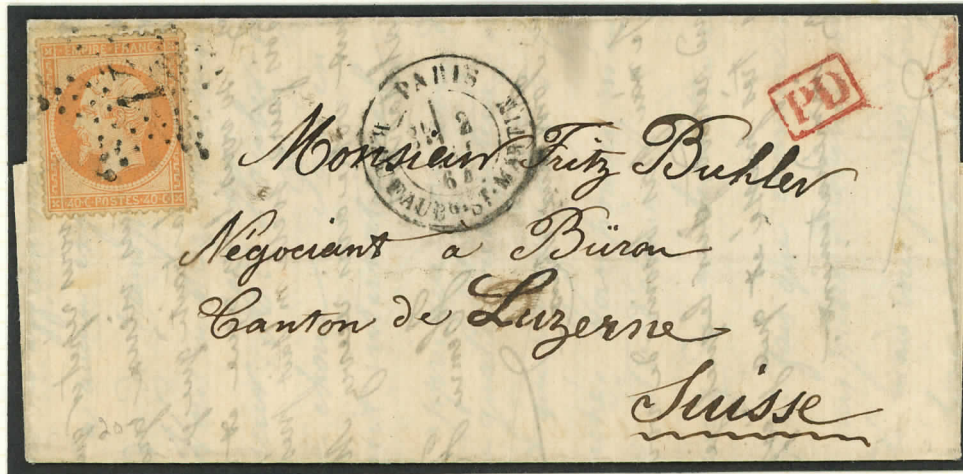 EMPIRE FRANC
40·C·POSTES·40·C
PARIS
2
64
R. FAUBG. ST. MARTIN
PD
Monsieur Fritz Buhler
Négociant a Büron
Canton de Luzerne
Suisse